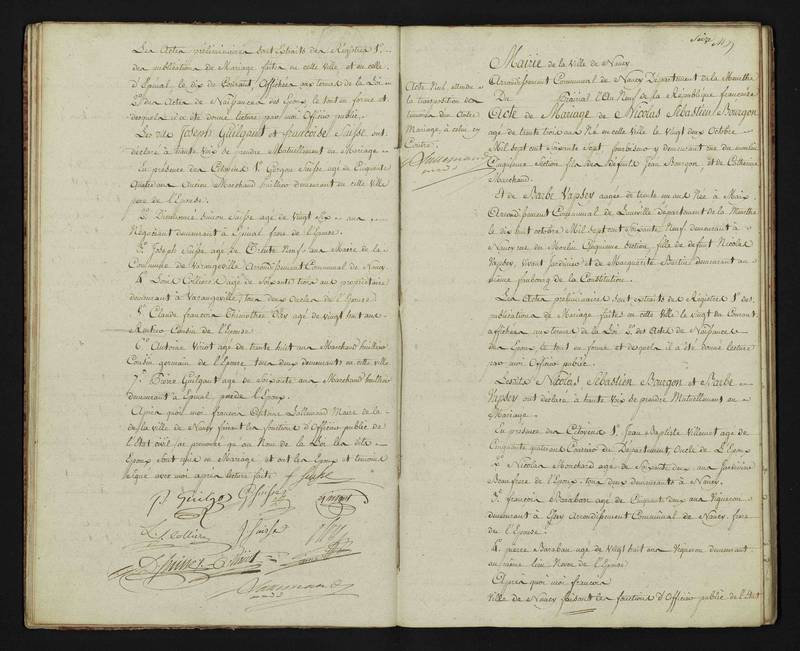 Les Actes préliminaires sont Extraits des Registres 1°.
des publications de Mariage faites en cette ville, et en celle
d'Epinal, le dix du Courant, Affichées aux termes de la Loi
2° des Actes de Naissance des Epoux, le tout en forme et
desquels il a été donné lecture par moi Officier public.
Lesdits Joseph Guilgant et françoise Suisse ont
déclaré à haute voix se prendre Mutuellement en Mariage
En présence des Citoyens 1° Suisse agé de Cinquante
quatre ans ancien Marchand huillier demeurant en cette ville
pere de l'Epouse.
2° Dieudonné Suisse agé de vingt six ans
Negociant demeurant à Epinal frere de l'Epouse.
3° Joseph Suisse agé de Trente Neuf ans Maire de la
Commune de Varangeville Arrondissement Communal de Nancy
4° Louis Colliere agé de Soixante trois ans propriétaire
demeurant à Varangeville, tous deux Oncles de l'Epouse
5° Claude françois Thimothée agé de vingt huit ans
Rentier Cousin de l'Epouse
6° Antoine Viriot agé de trente huit ans Marchand huillier
Cousin germain de l'Epouse, tous deux demeurants en cette ville
7° Pierre Guilgant agé de Soixante ans Marchand huillier
demeurant à Epinal, pere de l'Epoux.
Après quoi moi françois Antoine Lallemand Maire de la
ville de Nancy faisant les fonctions d'Officier public de
l'Etat Civil, j'ai prononcé qu'au Nom de la Loi les dits
Epoux sont unis en Mariage et ont les Epoux et témoins
Signé avec moi après lecture faite. f Suisse
J Guilgant Suisse
L. Colliere J Suisse
Lallemand
Seize
Acte Nul, attendu
la transposition des
témoins d'un Autre
Mariage à celui cy
Contre.
Lallemand
Mairie de la ville de Nancy
Arrondissement Communal de Nancy Département de la Meurthe
Du Prairial l'An Neuf de la République française
Acte de Mariage de Nicolas Sébastien Bourgon
age de trente trois ans Né en cette ville le vingt deux Octobre
Mil Sept cent Soixante Sept, y demeurant rue du moulin
Cinquieme Section fils des défunts Jean Bourgon, et de Catherine
Marchand.
Et de Barbe Vapsey agée de trente un ans Née à
Arrondissement Communal de Lunéville Département de la Meurthe
le dix huit octobre Mil Sept cent Soixante Neuf demeurant à
Nancy rue du Moulin Cinquieme Section, fille de defunt Nicolas
Vapsey, vivant Jardinier et de Marguerite demeurant au
même faubourg de la Constitution.
Les Actes préliminaires sont extraits des Registres 1° des
publications de Mariage faites en cette ville le vingt du Courant,
affichées aux termes de la Loi 2° des Actes de Naissance
des Epoux, le tout en forme et desquels il a été donné lecture
par moi Officier public.
Lesdits Nicolas Sébastien Bourgon et Barbe
Vapsey ont déclaré à haute voix se prendre Mutuellement en
Mariage.
En présence des Citoyens 1° Jean Baptiste Villemet agé de
Cinquante quatre ans du Département, Oncle de l'Epoux
2° Nicolas Mouchard agé de Soixante deux ans Jardinier
Beaufrere de l'Epoux tous deux demeurants à Nancy.
3° françois Baraban agé de Cinquante deux ans Vigneron
demeurant à Essey Arrondissement Communal de Nancy frere
de l'Epouse.
4° pierre Baraban agé de Vingt huit ans Vigneron demeurant
au même lieu Neveu de l'Epouse
Après quoi moi françois
ville de Nancy faisant les fonctions d'Officier public de l'Etat